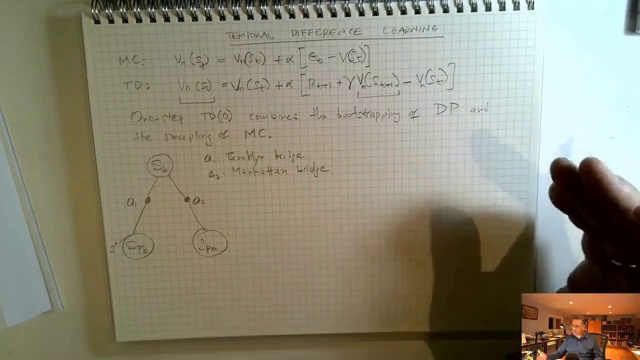 TEMPORAL DIFFERENCE LEARNING
MC: Vπ(St) = Vπ(St) + α [Gt − V(St)]
TD: Vπ(St) = Vπ(St) + α [Rt+1 + γ Vπ(St+1) − Vπ(St)]
One-step TD(0) combines the bootstrapping of DP and
the sampling of MC.
a1: Brooklyn bridge
a2: Manhattan bridge
S0
a1 a2
s'